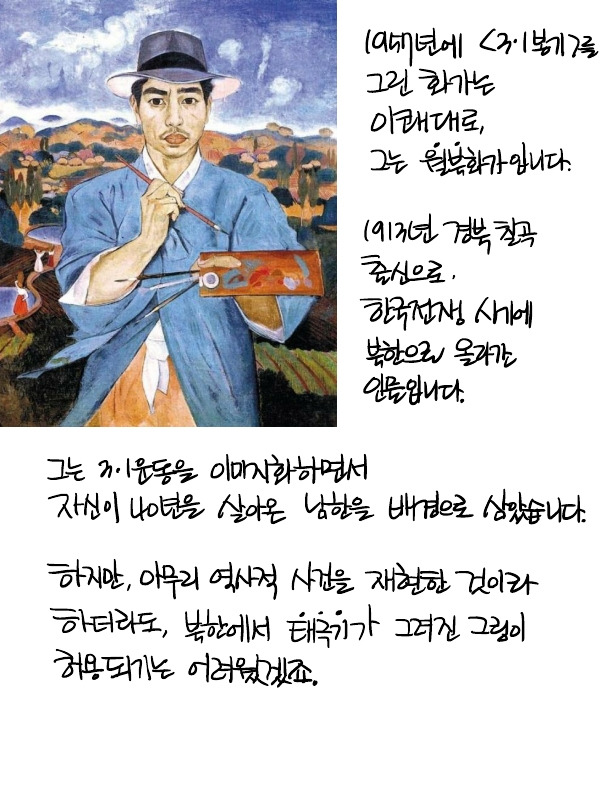 1957년에 <3·1봉기>를
그린 화가는
이쾌대로,
그는 월북화가입니다.
1913년 경북 칠곡
출신으로,
한국전쟁 시기에
북한으로 올라간
인물입니다.
그는 3·1운동을 이미지화하면서
자신이 40년을 살아온 남한을 배경으로 삼았습니다.
하지만, 아무리 역사적 사건을 재현한 것이라
하더라도, 북한에서 태극기가 그려진 그림이
허용되기는 어려웠겠죠.